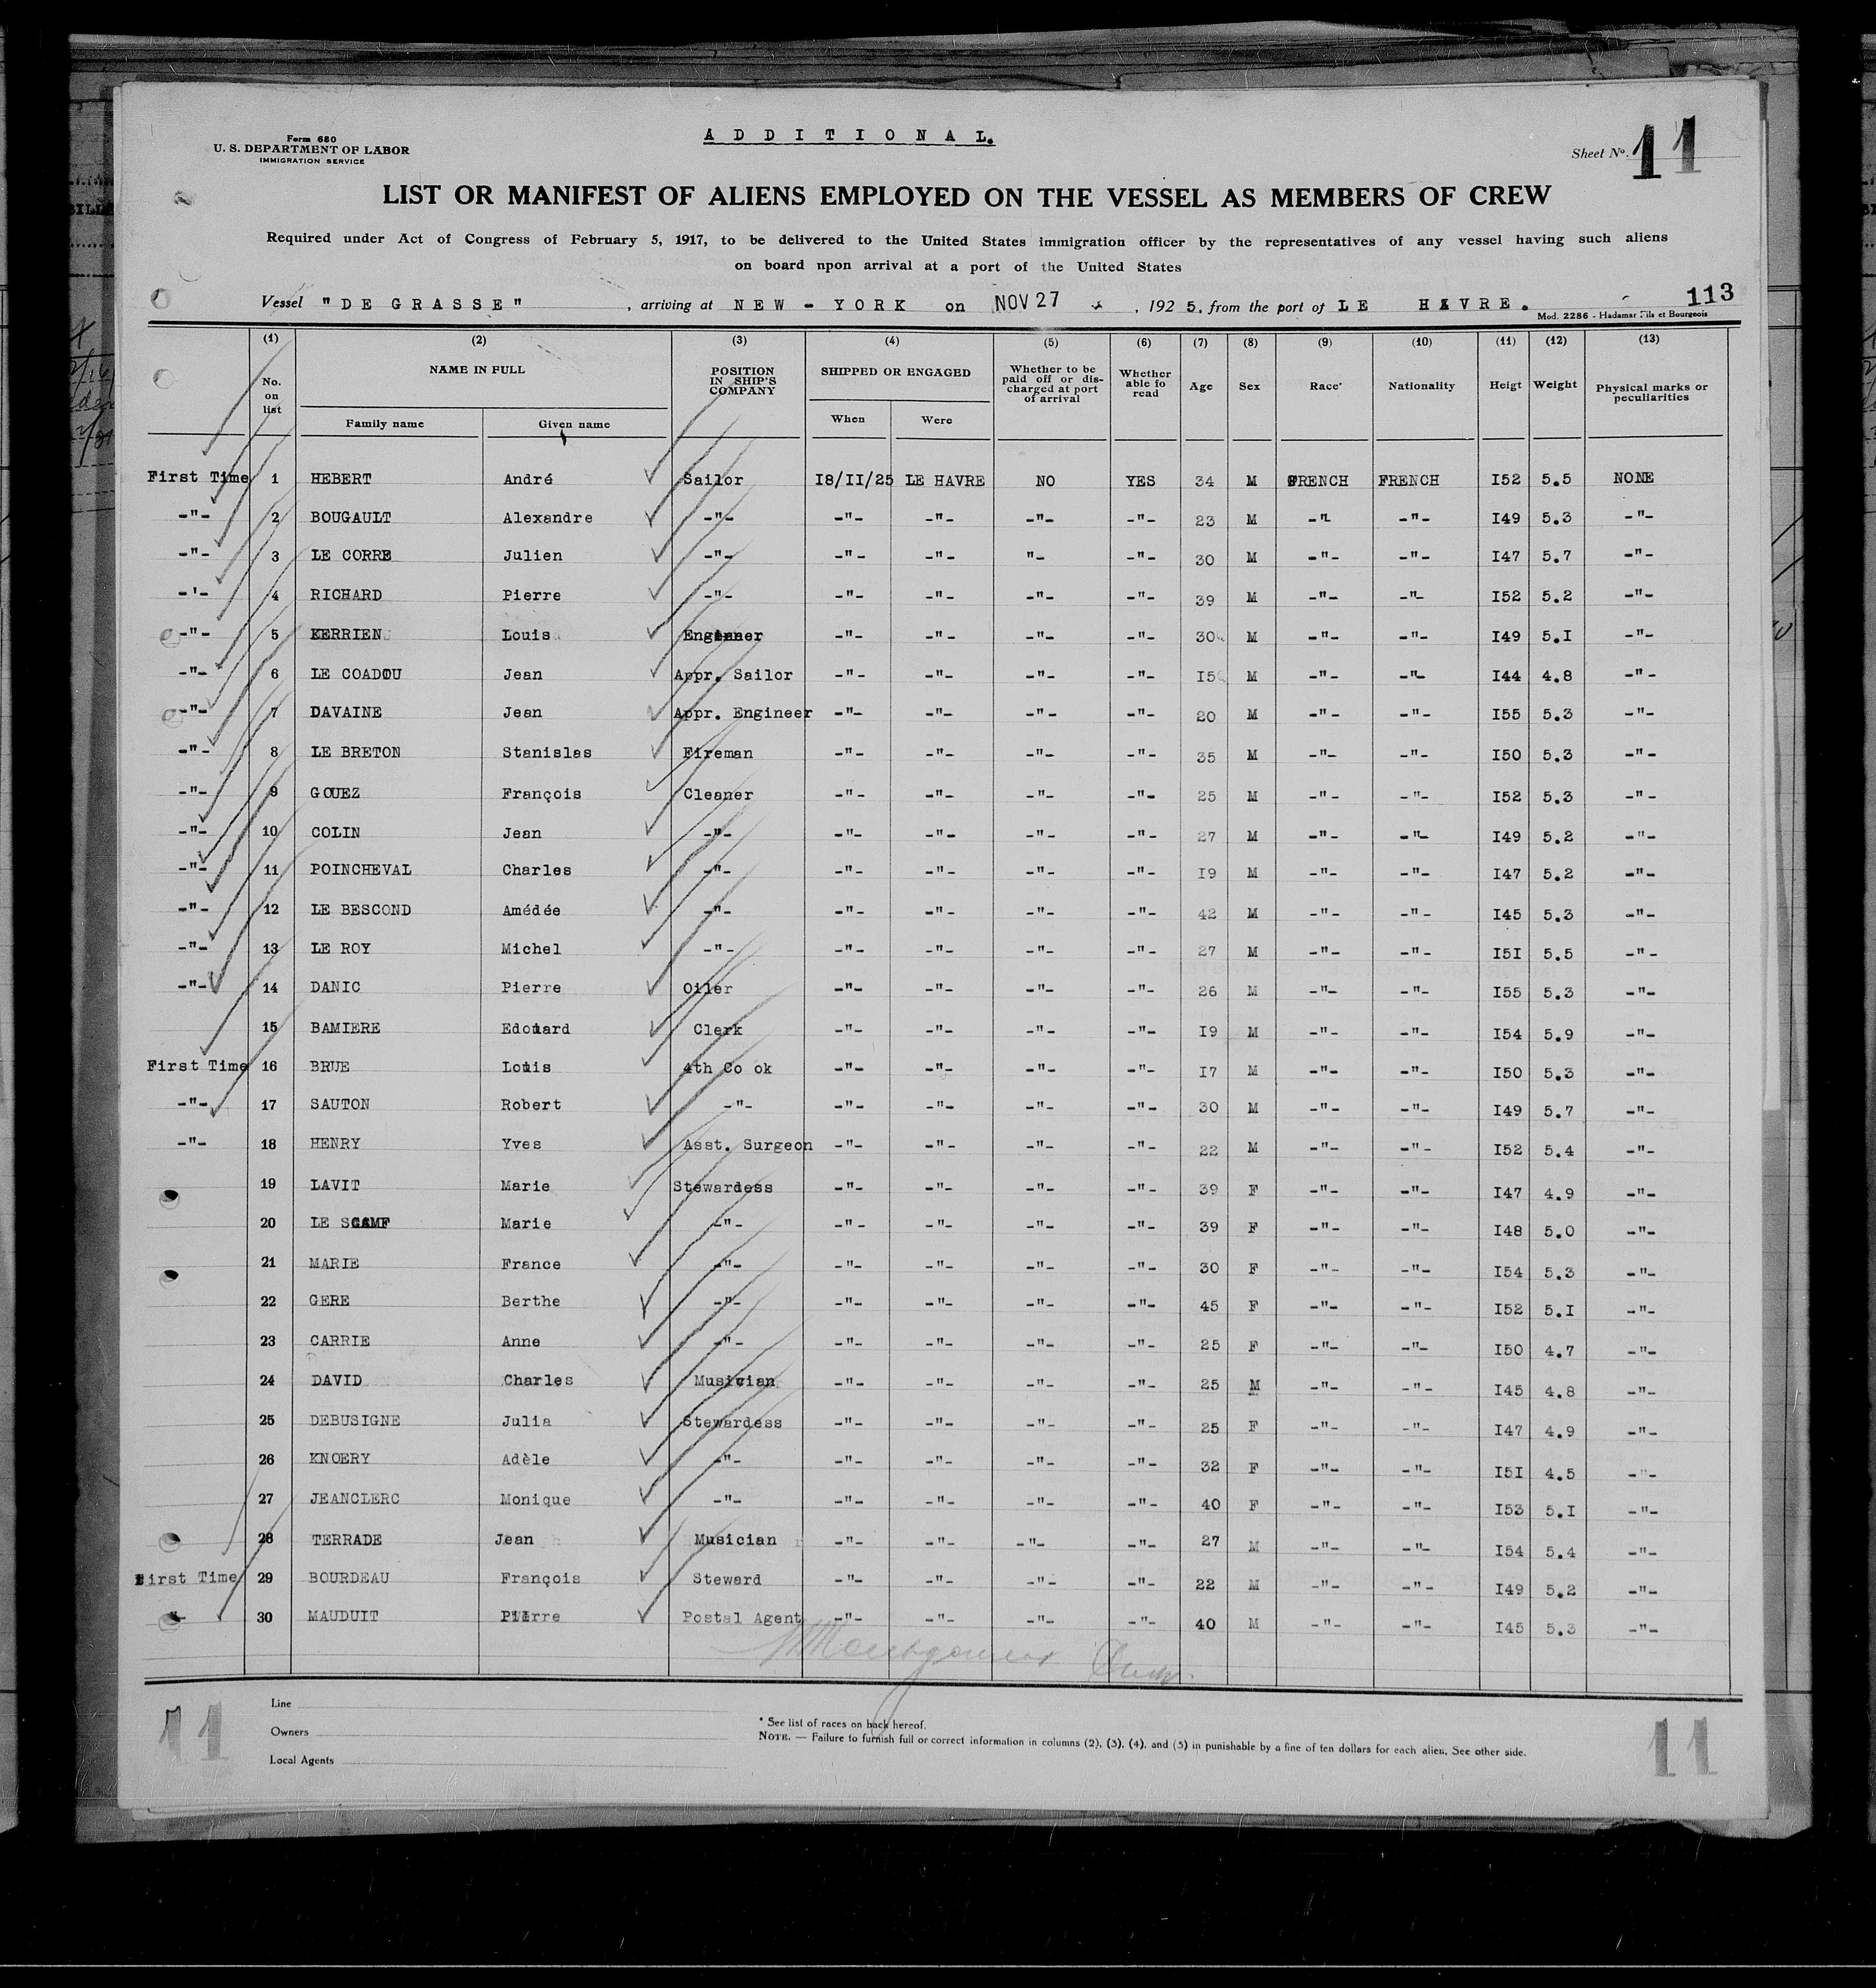 A D D I T I O N A L.
Form 680
U. S. DEPARTMENT OF LABOR
IMMIGRATION SERVICE
Sheet No. 11
LIST OR MANIFEST OF ALIENS EMPLOYED ON THE VESSEL AS MEMBERS OF CREW
Required under Act of Congress of February 5, 1917, to be delivered to the United States immigration officer by the representatives of any vessel having such aliens
on board npon arrival at a port of the United States
Vessel "DE GRASSE" , arriving at NEW - YORK on NOV 27 , 1925, from the port of LE HAVRE.
113
Mod. 2286 - Hadamar Fils et Bourgeois
(1) (2) (3) (4) (5) (6) (7) (8) (9) (10) (11) (12) (13)
No. on list NAME IN FULL POSITION IN SHIP'S COMPANY SHIPPED OR ENGAGED Whether to be paid off or discharged at port of arrival Whether able fo read Age Sex Race* Nationality Heigt Weight Physical marks or peculiarities
Family name Given name When Were
First Time 1 HEBERT André Sailor 18/11/25 LE HAVRE NO YES 34 M FRENCH FRENCH I52 5.5 NONE
-"- 2 BOUGAULT Alexandre -"- -"- -"- -"- -"- 23 M -"- -"- I49 5.3 -"-
-"- 3 LE CORRE Julien -"- -"- -"- "- -"- 30 M -"- -"- I47 5.7 -"-
-'- 4 RICHARD Pierre -"- -"- -"- -"- -"- 39 M -"- -"- I52 5.2 -"-
-"- 5 KERRIEN Louis Engineer -"- -"- -"- -"- 30 M -"- -"- I49 5.I -"-
-"- 6 LE COADOU Jean Appr. Sailor -"- -"- -"- -"- I5 M -"- -"- I44 4.8 -"-
-"- 7 DAVAINE Jean Appr. Engineer -"- -"- -"- -"- 20 M -"- -"- I55 5.3 -"-
-"- 8 LE BRETON Stanislas Fireman -"- -"- -"- -"- 35 M -"- -"- I50 5.3 -"-
-"- 9 GOUEZ François Cleaner -"- -"- -"- -"- 25 M -"- -"- I52 5.3 -"-
-"- 10 COLIN Jean -"- -"- -"- -"- -"- 27 M -"- -"- I49 5.2 -"-
-"- 11 POINCHEVAL Charles -"- -"- -"- -"- -"- I9 M -"- -"- I47 5.2 -"-
-"- 12 LE BESCOND Amédée -"- -"- -"- -"- -"- 42 M -"- -"- I45 5.3 -"-
-"- 13 LE ROY Michel -"- -"- -"- -"- -"- 27 M -"- -"- I5I 5.5 -"-
-"- 14 DANIC Pierre Oiler -"- -"- -"- -"- 26 M -"- -"- I55 5.3 -"-
15 BAMIERE Edouard Clerk -"- -"- -"- -"- I9 M -"- -"- I54 5.9 -"-
First Time 16 BRUE Louis 4th Co ok -"- -"- -"- -"- I7 M -"- -"- I50 5.3 -"-
-"- 17 SAUTON Robert -"- -"- -"- -"- -"- 30 M -"- -"- I49 5.7 -"-
-"- 18 HENRY Yves Asst. Surgeon -"- -"- -"- -"- 22 M -"- -"- I52 5.4 -"-
19 LAVIT Marie Stewardess -"- -"- -"- -"- 39 F -"- -"- I47 4.9 -"-
20 LE Marie -"- -"- -"- -"- -"- 39 F -"- -"- I48 5.0 -"-
21 MARIE France -"- -"- -"- -"- -"- 30 F -"- -"- I54 5.3 -"-
22 GERE Berthe -"- -"- -"- -"- -"- 45 F -"- -"- I52 5.I -"-
23 CARRIE Anne -"- -"- -"- -"- -"- 25 F -"- -"- I50 4.7 -"-
24 DAVID Charles Musician -"- -"- -"- -"- 25 M -"- -"- I45 4.8 -"-
25 DEBUSIGNE Julia Stewardess -"- -"- -"- -"- 25 F -"- -"- I47 4.9 -"-
26 KNOERY Adèle -"- -"- -"- -"- -"- 32 F -"- -"- I5I 4.5 -"-
27 JEANCLERC Monique -"- -"- -"- -"- -"- 40 F -"- -"- I53 5.I -"-
28 TERRADE Jean Musician -"- -"- -"- -"- 27 M -"- -"- I54 5.4 -"-
First Time 29 BOURDEAU François Steward -"- -"- -"- -"- 22 M -"- -"- I49 5.2 -"-
" 30 MAUDUIT Pierre Postal Agent -"- -"- -"- -"- 40 M -"- -"- I45 5.3 -"-
11 11
Line
Owners
Local Agents
* See list of races on back hereof.
NOTE. — Failure to furnish full or correct information in columns (2), (3), (4), and (5) in punishable by a fine of ten dollars for each alien. See other side.